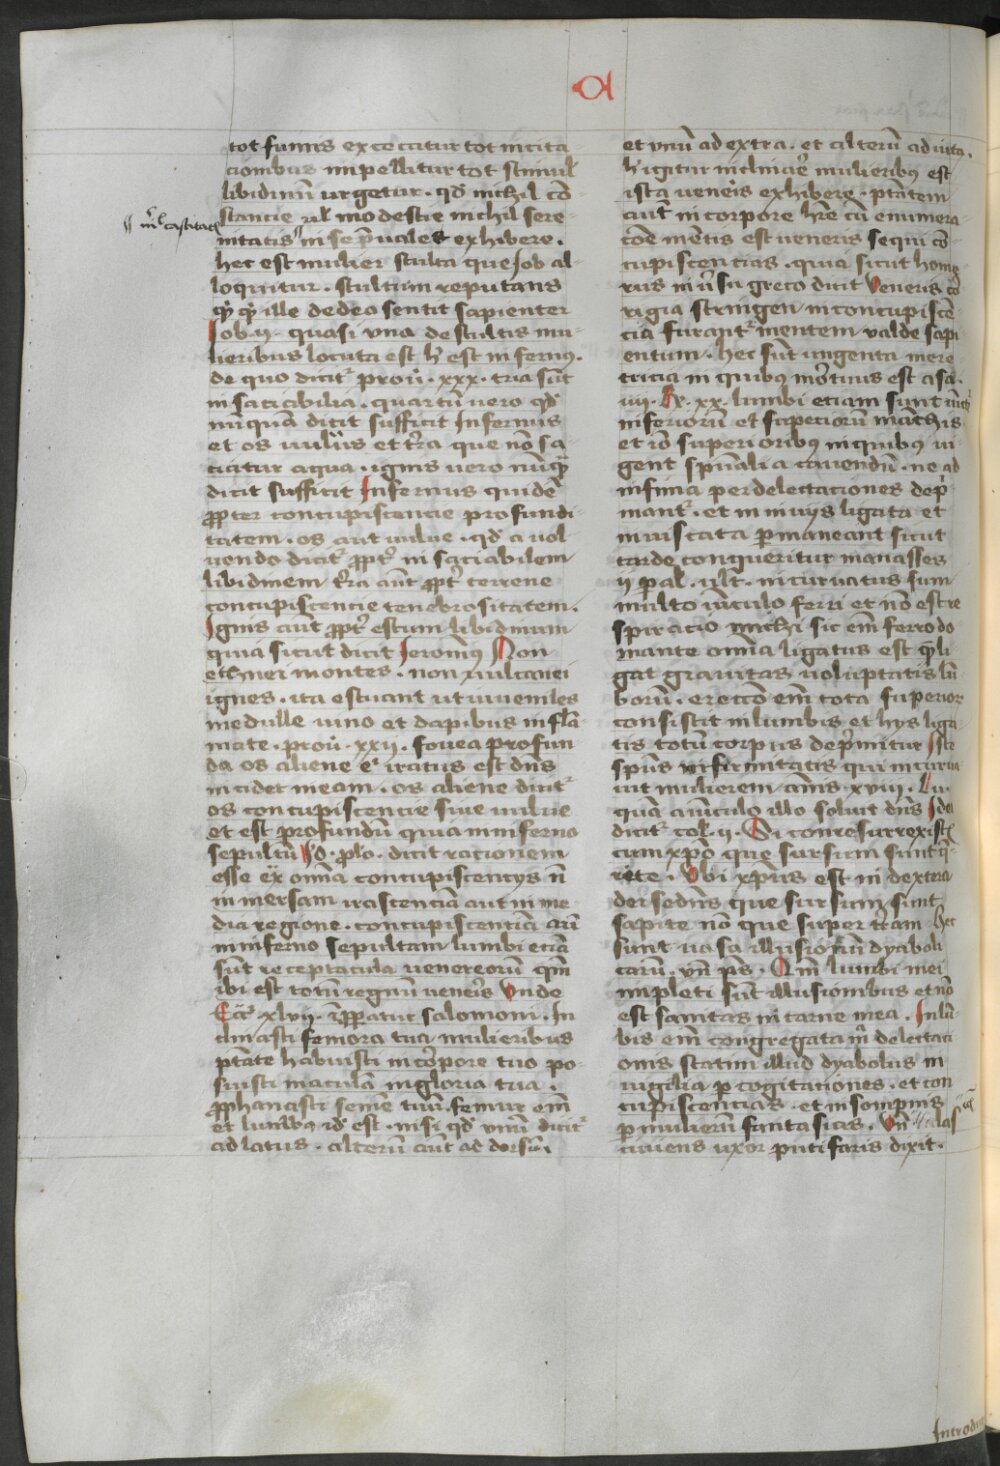 a
tot fumis excecatur tot incita
cionibus impellitur tot stimul'
libidinū urgetur . qd' nichil cō
stancie ul' modestie nichil sere
nl' castitatis
nitatis in se p̄ualet exhibere .
hec est mulier stulta que Job al
loquitur . stultum reputans
ille de deo sentit sapienter
Job ij . quasi vna de stultis mu
lieribus locuta est h' est infernꝰ .
de quo dicitr prou̇ . xxx . tria sūt
insaciabilia . quartū uero qd'
nūquā dicit sufficit Infernus
et os uulue et tr̄a que nō sa
ciatur aqua . ignis uero nūqᷓ
dicit sufficit Infernus quidē
ꝓpter concupiscencie profundi
tatem . os aut uulue . qd' a uol
uendo dicitr ꝓptr insaciabilem
libidinem tr̄a aūt ꝓptr terrene
concupiscencie tenebrositatem .
Ignis aūt ꝓptr estum libidinum
quia sicut dicit Jeronimꝰ Non
ethnei montes . non uulcanei
ignes . ita estuant ut iuueniles
medulle uino et dapibus infla
mate . prou̇ . xxij . fouea profun
da os aliene cꝰ iratus est dn̄s
incidet in eam . os aliene dicitr
os concupiscencie siue uulue
et est profundū quia in inferno
sepultū . plo . dicit racionem
esse ex om̄ia concupiscencijs n̄
inmersam irascenciā aut in me
dia regione . concupiscenciā aū
in inferno sepultam lumbi eciā
sūt receptacula uenereorū qm̄
ibi est totū regnū ueneris Vnde
Eccͣⁱ xlvij . īpꝑatur salomoni . In
clinasti femora tua mulieribus
ptāte habuisti in corpore tuo po
suisti maculā in gloria tua .
ꝓphanasti semē tuū . femur em̄
et lumbꝰ id' est . nisi qd' vnū dicitr
ad latus . alterū aūt ad dorsū .
et vnū ad extra . et alterū ad intra .
h' igitur inclinar̄ mulieribꝰ est
ista ueneris exhibere . ptātem
aūt in corpore hr̄e cū enumera
cōe mētis est ueneris sequi cō
cupiscencias . quia sicut home
rus in ūsu greco dicit Veneris cor
rigia stringens in concupiscē
cia furantr mentem valde sapi
entum . hec sūt ungenta mere
tricia in quibꝰ mortuus est asa .
xx . lumbi eciam sunt
inferiorū et superiorū
et iō superioribꝰ in quibꝰ ui
gent spūalia cauendū . ne ad
infima per delectaciones depri
mantr . et in inuijs ligata et
inuiscata ꝑmaneant sicut
tarde conqueritur manasses
ij ꝑal . ult . incuruatus sum
multo uīculo ferri et nō est re
spiracio michi sic em̄ ferro do
mante om̄ia ligatus est qᷓ li
gat grauitas uoluptatis lū
borū . ereccō em̄ tota superior
consistit in lumbis et hijs liga
tis totū corpus deprimitur Iste
spūs infirmitatis qui incurua
uit mulierem annis xviij . Lu
quā a uīculo illo soluit dn̄s Ideo
dicitr col . ij . Si conresurrexistis
cum xp̄o que sursum sunt q̄
rite . Vbi xp̄us est in dextera
dei sedens que sursum sunt
sapite nō que super tr̄am hec
sunt uasa illusionū dyaboli
carū . vn̄ ps . Qm̄ lumbi mei
impleti sūt illusionibus et nō
est sanitas in carne mea . In lū
bis em̄ congregata mᷓ delectaci
onis statim illud dyabolus in
uigilia ꝑ cogitaciones . et con
cupiscencias . et in sompnis
ꝑ mulierū fantasias . Vn̄
uxor putifaris dixit .